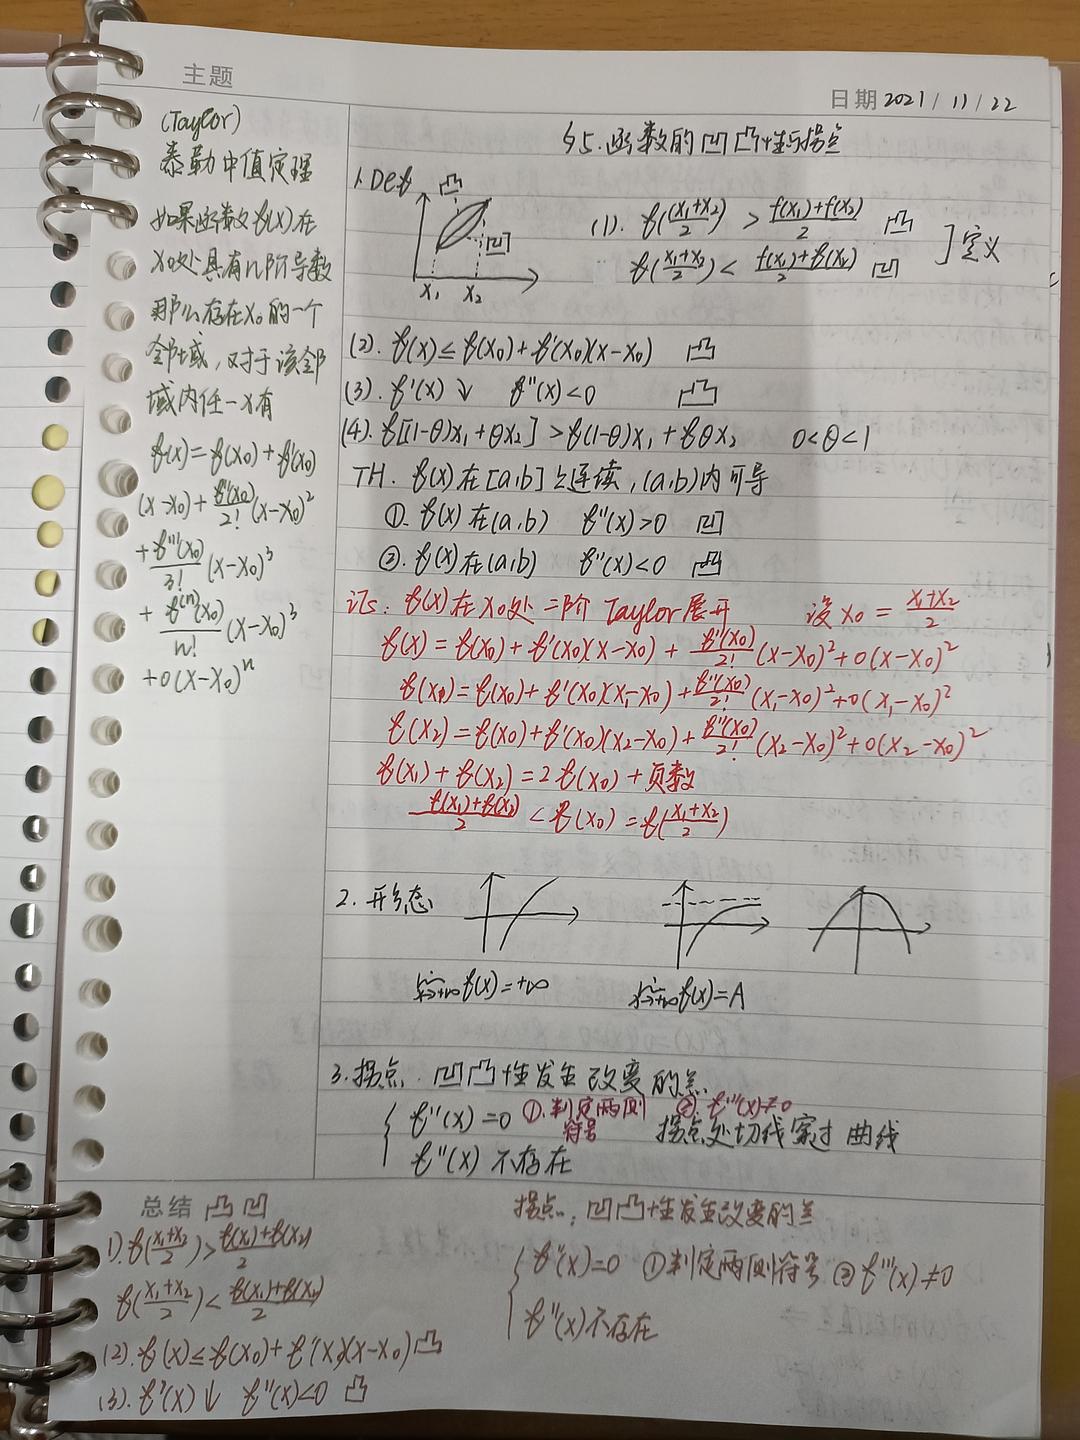 主题
日期 2021/11/22
(Taylor)
泰勒中值定理
如果函数f(x)在
x0处具有n阶导数
那么存在x0的一个
邻域，对于该邻
域内任一x有
f(x)=f(x0)+f'(x0)
(x-x0)+f''(x0)/2!(x-x0)²
+f'''(x0)/3!(x-x0)³
+f⁽ⁿ⁾(x0)/n!(x-x0)³
+o(x-x0)ⁿ
§5.函数的凹凸性与拐点
1.Def
凸
凹
x1 x2
(1). f((x1+x2)/2) > (f(x1)+f(x2))/2 凸
f((x1+x2)/2) < (f(x1)+f(x2))/2 凹
]定义
(2). f(x)≤f(x0)+f'(x0)(x-x0) 凸
(3). f'(x)↓ f''(x)<0 凸
(4). f[(1-θ)x1+θx2]>f(1-θ)x1+fθx2 0<θ<1
TH. f(x)在[a,b]上连续,(a,b)内可导
①. f(x)在(a,b) f''(x)>0 凹
②. f(x)在(a,b) f''(x)<0 凸
记: f(x)在x0处二阶Taylor展开 设x0=(x1+x2)/2
f(x)=f(x0)+f'(x0)(x-x0)+f''(x0)/2!(x-x0)²+o(x-x0)²
f(x1)=f(x0)+f'(x0)(x1-x0)+f''(x0)/2!(x1-x0)²+o(x1-x0)²
f(x2)=f(x0)+f'(x0)(x2-x0)+f''(x0)/2!(x2-x0)²+o(x2-x0)²
f(x1)+f(x2)=2f(x0)+负数
(f(x1)+f(x2))/2<f(x0)=f((x1+x2)/2)
2.形态
lim x→+∞ f(x)=+∞
lim x→+∞ f(x)=A
3.拐点.凹凸性发生改变的点.
{ f''(x)=0 ①.判定两侧符号 ②.f'''(x)≠0
拐点处切线穿过曲线
f''(x)不存在
总结 凸凹
1).f((x1+x2)/2)>(f(x1)+f(x2))/2
f((x1+x2)/2)<(f(x1)+f(x2))/2
(2).f(x)≤f(x0)+f'(x0)(x-x0)凸
(3).f'(x)↓ f''(x)<0 凸
拐点:凹凸性发生改变的点
{ f''(x)=0 ①判定两侧符号 ②f'''(x)≠0
f''(x)不存在